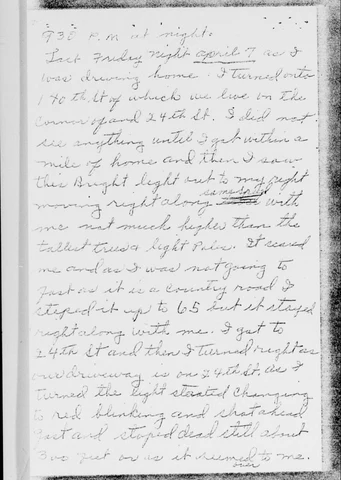 930 P.M at night.
Last Friday night april 7 as I
was driving home. I turned onto
140th St of which we live on the
corner of and 24th St. I did not
see anything until I got within a
mile of home and then I saw
this Bright light out to my right
moving right along same speed with
me not much higher than the
tallest trees & light Poles. It scared
me and as I was not going to
fast as it is a country road I
steped it up to 65 but it stayed
right along with me. I got to
24th St and then I turned right as
our driveway is on 24th St. as I
turned the light started changing
to red blinking and shot ahead
fast and stoped dead still about
300 feet or as it seemed to me.
over